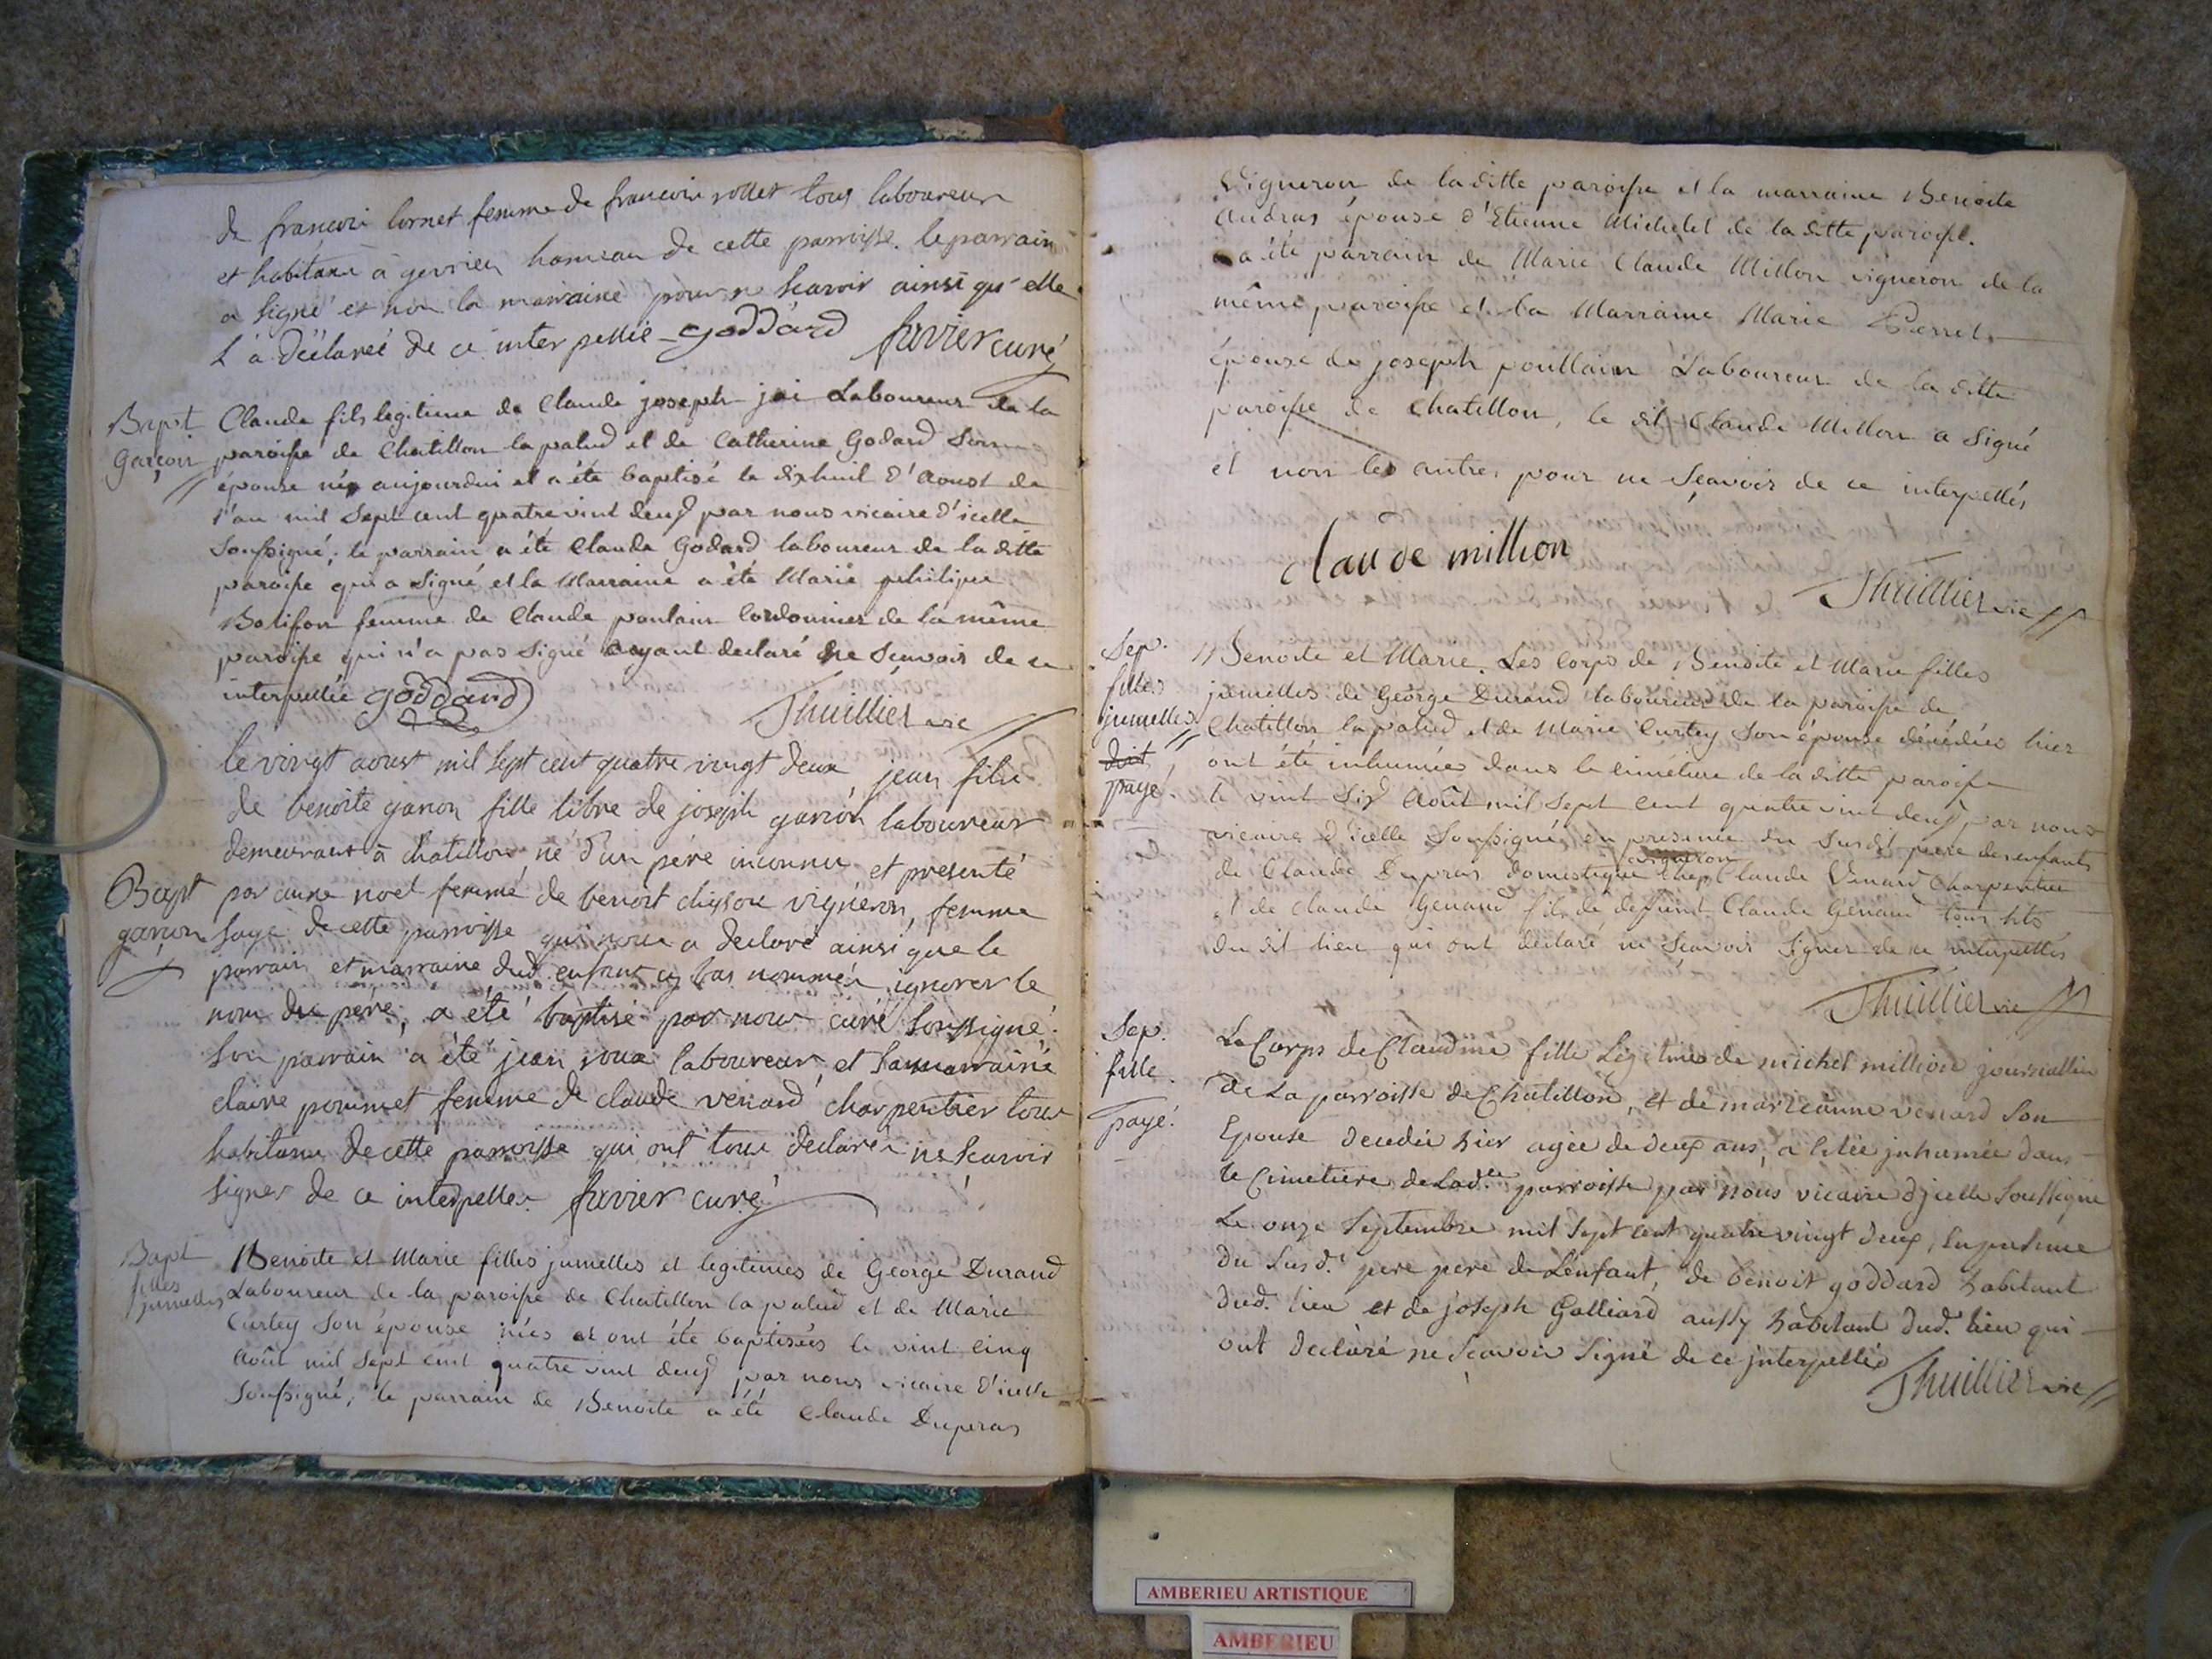 de francois cornet femme de francois rollet tous laboureurs
et habitans à gevrieu hameau de cette parroisse. le parrain
a signé et non la marraine pour ne scavoir ainsi qu'elle
l'a déclareé de ce interpellée goddard favier curé
Bapt
Garçon
Claude fils legitime de Claude joseph jai Laboureur de la
paroisse de Chatillon la palud et de Catherine Godard son
épouse né aujourdui et a été baptisé le dixhuit d'Aoust de
l'an mil Sept cent quatre vint deux par nous vicaire d'icelle
soussigné; le parrain a été Claude Godard laboureur de la ditte
paroisse qui a signé et la Marraine a été Marie philipe
Botifon femme de Claude poulain Cordonnier de la même
paroisse qui n'a pas signé ayant declaré ne sçavoir de ce
interpellée goddard
Thuillier vic
le vingt aoust mil sept cent quatre vingt deux jean fils
de benoite garron fille libre de joseph garron laboureur
demeurant à chatillon né d'un pére inconnu et presenté
Bapt
garcon
par anne noel femme de benoit vigneron, femme
sage de cette parroisse qui nous a declaré ainsi que le
parrain et marraine dud. enfant cy bas nommés ignorer le
nom du pére, a été baptisé par nous curé soussigné.
son parrain a été jean roux laboureur, et sa marraine
claire pommet femme de claude venard charpentier tous
habitans de cette parroisse qui ont tous declarés ne scavoir
signer de ce interpellés favier curé
Bapt
filles
jumelles
Benoite et Marie filles jumelles et legitimes de George Durand
Laboureur de la paroisse de Chatillon la palud et de Marie
Curtey son épouse nées et ont été baptisées le vint cinq
Août mil Sept cent quatre vint deux par nous vicaire d'icelle
soussigné, le parrain de Benoite a été Claude Duperas
Vigneron de la ditte paroisse et la marraine Benoite
Andras épouse d'Etienne Michelet de la ditte paroisse.
a été parrain de Marie Claude Millon vigneron de la
même paroisse et la Marraine Marie Pierrel
épouse de joseph poullain Laboureur de la ditte
paroisse de Chatillon, le dit Claude Millon a signé
et non les autres pour ne sçavoir de ce interpellés
claude million
Thuillier vic
Sep.
filles
jumelles
doit
payé.
Benoite et Marie. Les corps de Benoite et Marie filles
jumelles de George Durand laboureur de la paroisse de
Chatillon la palud et de Marie Curtey son épouse décédées hier
ont été inhumées dans le cimétiere de la ditte paroisse
le vint six Août mil Sept cent quatre vint deux par nous
vicaire d'icelle soussigné, en presence du susdit pere des enfants
vigneron
de Claude Duperas domestique Claude Venard Charpentier
et de Claude Genaud fils de defunt Claude Genaud tous hts
du dit lieu qui ont déclaré ne scavoir signer de ce interpellés
Thuillier vic
Sep.
fille.
payé.
Le Corps de Claudine fille Légitime de michel million journallier
de La parroisse de Chatillon, et de marieanne venard son
Epouse decedée hier agée de deux ans, a Estée jnhumée dans
le Cimetiere de Lad.te parroisse par nous vicaire d'jcelle soussigné
Le onze Septembre mil Sept cent quatre vingt deux, En presence
du susd.t pere pere de L'enfant, de benoit goddard habitant
dud. lieu et de joseph Galliard aussy habitant dud. lieu qui
ont declaré ne scavoir signé de ce jnterpellés
Thuillier vic
AMBERIEU ARTISTIQUE
AMBERIEU